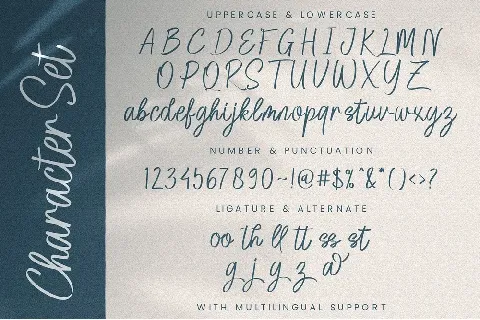 Character Set
UPPERCASE & LOWERCASE
A B C D E F G H I J K L M N
O P Q R S T U V W X Y Z
abcdefghijklmnopqrstuvwxyz
NUMBER & PUNCTUATION
1234567890~!@#$%^&*()<>?
LIGATURE & ALTERNATE
oo th ll tt ss st
g j y z a
WITH MULTILINGUAL SUPPORT